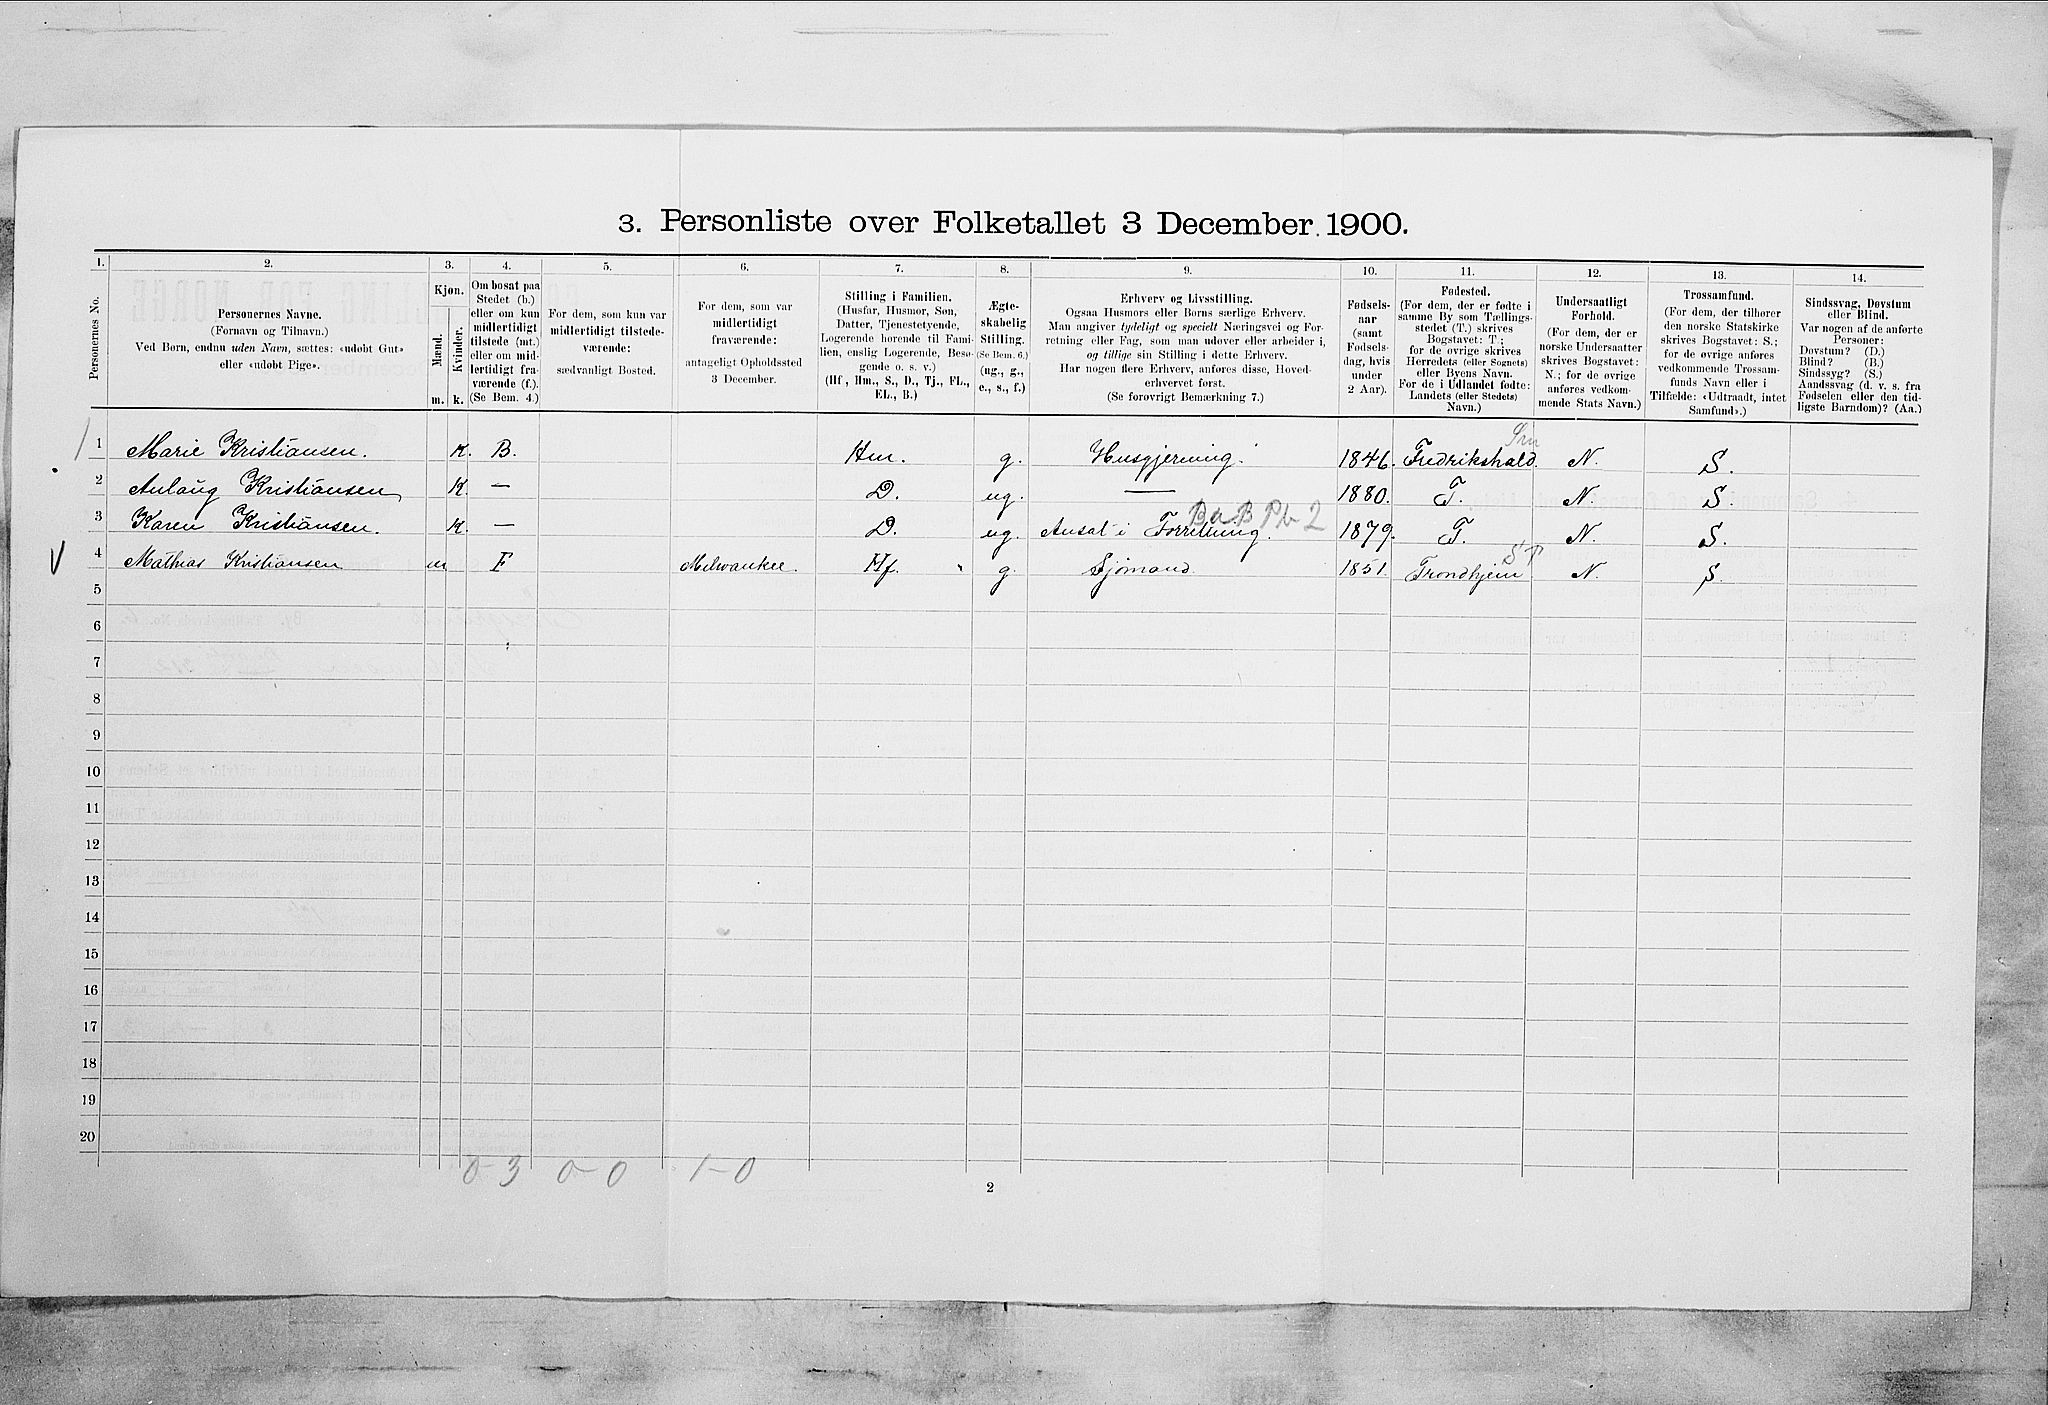 3. Personliste over Folketallet 3 December 1900.
1. 2. 3. 4. 5. 6. 7. 8. 9. 10. 11. 12. 13. 14.
Personernes No.
Personernes Navne.
(Fornavn og Tilnavn.)
Ved Børn, endnu uden Navn, sættes: «udøbt Gut»
eller «udøbt Pige».
Kjøn.
Mænd.
Kvinder.
m. k.
Om bosat paa
Stedet (b.)
eller om kun
midlertidigt
tilstede (mt.)
eller om mid-
lertidigt fra-
værende (f.).
(Se Bem. 4.)
For dem, som kun var
midlertidigt tilstede-
værende:
sædvanligt Bosted.
For dem, som var
midlertidigt
fraværende:
antageligt Opholdssted
3 December.
Stilling i Familien.
(Husfar, Husmor, Søn,
Datter, Tjenestetyende,
Logerende hørende til Fami-
lien, enslig Logerende, Besø-
gende o. s. v.)
(Hf, Hm., S., D., Tj., FL.,
EL., B.)
Ægte-
skabelig
Stilling.
(Se Bem. 6.)
(ug., g.,
e., s., f.)
Erhverv og Livsstilling.
Ogsaa Husmors eller Børns særlige Erhverv.
Man angiver tydeligt og specielt Næringsvei og For-
retning eller Fag, som man udover eller arbeider i,
og tillige sin Stilling i dette Erhverv.
Har nogen flere Erhverv, anføres disse, Hoved-
erhvervet først.
(Se forøvrigt Bemærkning 7.)
Fødsels-
aar
(samt
Fødsels-
dag, hvis
under
2 Aar).
Fødested.
(For dem, der er fødte i
samme By som Tællings-
stedet (T.) skrives
Bogstavet: T.;
for de øvrige skrives
Herredets (eller Sognets)
eller Byens Navn.
For de i Udlandet fødte:
Landets (eller Stedets)
Navn.)
Undersaatligt
Forhold.
(For dem, der er
norske Undersaatter
skrives Bogstavet:
N.; for de øvrige
anføres vedkom-
mende Stats Navn.)
Trossamfund.
(For dem, der tilhører
den norske Statskirke
skrives Bogstavet: S.;
for de øvrige anføres
vedkommende Trossam-
funds Navn eller i
Tilfælde: «Udtraadt, intet
Samfund».)
Sindssvag, Døvstum
eller Blind.
Var nogen af de anførte
Personer:
Døvstum? (D.)
Blind? (B.)
Sindssyg? (S.)
Aandssvag (d. v. s. fra
Fødselen eller den tid-
ligste Barndom)? (Aa.)
1 Marie Kristiansen. K. B. Hm. g. Husgjerning. 1846. Fredrikshald. N. S.
2 Aulaug Kristiansen K. — D. ug. — 1880. T. N. S.
Ba B Pb 2
3 Karen Kristiansen. K. — D. ug. Ansat i Forretning. 1879. T. N. S.
V 4 Mathias Kristiansen m F Milwaukee. Hf. g. Sjømand. 1851. Trondhjem ST N. S.
5
6
7
8
9
10
11
12
13
14
15
16
17
18
19
20
0-3 0-0 1-0
2